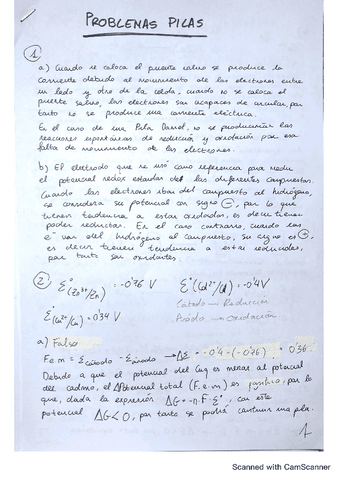 PROBLEMAS PILAS
1
a) Cuando se coloca el puente salino se produce la
corriente debido al movimiento de los electrones entre
un lado y otro de la celda, cuando no se coloca el
puente salino, los electrones son incapaces de circular, por
tanto no se produce una corriente eléctrica.
En el caso de una Pila Daniel, no se producirían las
reacciones espontáneas de reducción y oxidación por esa
falta de movimiento de los electrones.
b) El electrodo que se usó como referencia para medir
el potencial redox estándar del los diferentes compuestos.
Cuando los electrones iban del compuesto al hidrógeno,
se considera su potencial con signo ⊖, por lo que
tienen tendencia a estar oxidados, es decir tienen
poder reductor. En el caso contrario, cuando los
e⁻ van del hidrógeno al compuesto, su signo es ⊕,
es decir tienen tendencia a estar reducidos,
por tanto son oxidantes.
2 Ɛ°(Zn²⁺/Zn) = -0'76 V Ɛ°(Cd²⁺/Cd) = -0'4 V
Ɛ°(Cu²⁺/Cu) = 0'34 V Cátodo — Reducción
Ánodo — Oxidación
a) Falso
Fem = Ɛcátodo - Ɛánodo → ΔƐ = -0'4 - (-0'76) = 0'36
Debido a que el potencial del cinq es menor al potencial
del cadmio, el ΔPotencial total (F.e.m) es positivo, por lo
que, dada la expresión ΔG = -n·F·Ɛ°, con este
potencial ΔG < 0, por tanto se podrá construir una pila.
1
Scanned with CamScanner